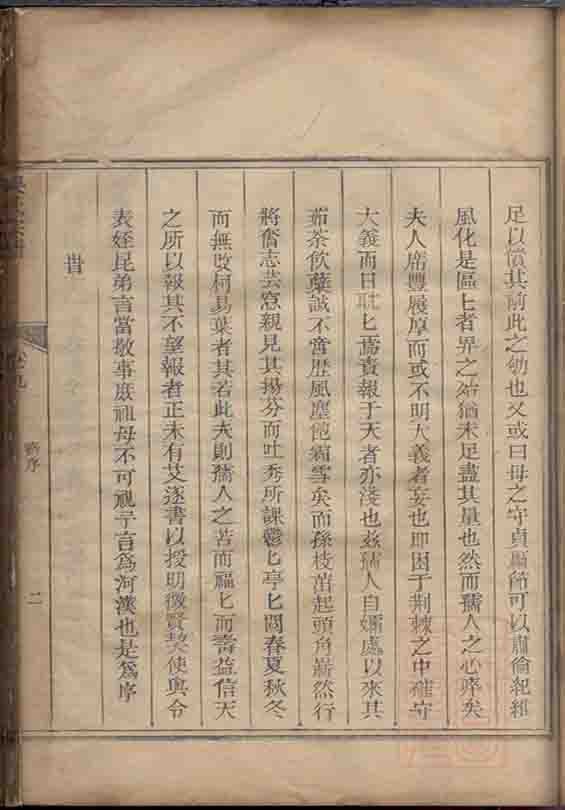 足以償其前此之劬也又或曰母之守貞勵節可以肅倫紀維
風化是區匕者畀之殆猶未足盡其量也然而孺人之心瘁矣
夫人席豐履厚而或不明大義者妄也即困于荆棘之中確守
大義而日耽匕焉責報于天者亦淺也兹孺人自孀處以來其
茹荼飲蘗誠不啻歷風塵飽霜雪矣而孫枝茁起頭角嶄然行
將奮志芸窓親見其揚芬而吐秀所謀鬱匕亭匕閱春夏秋冬
而無改柯易葉者其若此夫則孺人之苦而福匕而壽益信天
之所以報其不望報者正未有艾遂書以授明徵賢契使與令
表姪昆弟言當敬事庶祖母不可視予言為河漢也是為序
旹
卷九
壽序
二